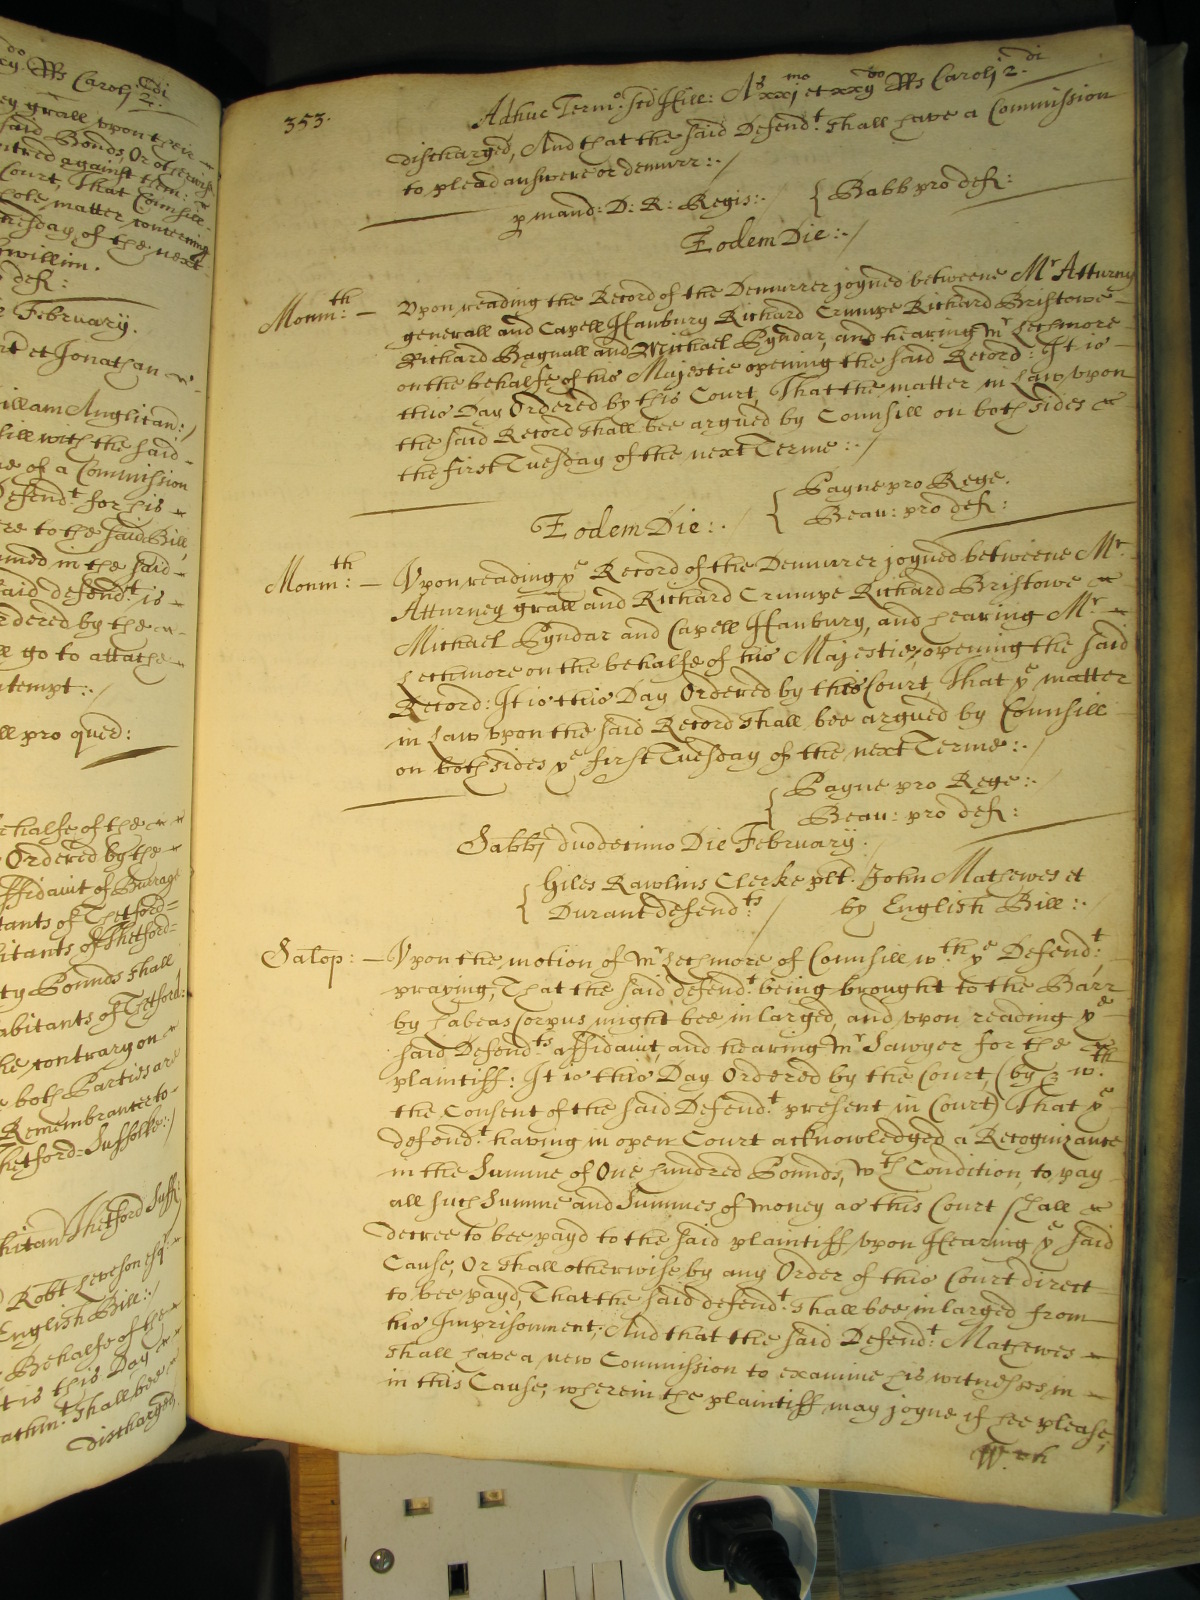 do
Caroli 2di
ey grall upon their
said Bonds, Or otherwise
entred against them:
Court, That Counsill
hole matter concerning
uesday of the next
willim.
deft:
February.
et Jonathan
illam Anglican:/
ill with the said
e of a Commission
Defendt for his
re to the said Bill,
ined in the said
said defendt: is
rdered by the
ll go to attache
ntempt:./
ll pro quer:
ehalfe of the
Ordered by the
ffidavit of Burrage
tants of Thetford=
itants of Thetford=
ty Pounds shall
abitants of Thetford:
he contrary on
both Parties are
Remembrancer to
hetford=Suffolke:/
hitan Thetford Suff:
Robt Leveson esqr
English Bill:/
Behalfe of the
t is this Day
shall bee
discharged,
353.
Adhuc Termo: scd Hill: Ao xximo et xxijdo RRs Caroli 2di
discharged, And that the said Defendt: shall have a Commission
to plead answere or demurr:./
p mand: D: R: Regis:. { Babb pro deft:
Eodem Die:./
Monmth: — Upon reading the Record of the Demurrer joyned betweene Mr Atturny
generall and Capell Hanbury Richard Crumpe Richard Bristowe
Richard Bagnall and Michael Pyndar, and hearing Mr Letchmore
on the behalfe of his Majestie opening the said Record: It is
this Day Ordered by this Court, That the matter in Law upon
the said Record shall bee argued by Counsill on both sides
the first Tuesday of the next Terme:./
{ Payne pro Rege.
Beau: pro deft:
Eodem Die:.
Monmth: — Upon reading ye Record of the Demurrer joyned betweene Mr
Atturney grall and Richard Crumpe Richard Bristowe
Michael Pyndar and Capell Hanbury, and hearing Mr
Letchmore on the behalfe of his Majestie, opening the said
Record: It is this Day Ordered by this Court, That ye matter
in Law upon the said Record shall bee argued by Counsill
on both sides ye first Tuesday of the next Terme:./
{ Payne pro Rege:./
Beau: pro deft:
Sabbi duodecimo Die February.
{ Giles Rawlins Clerke plt. John Mathewes et
Durant defendts: / by English Bill:.
Salop: — Upon the motion of Mr Letchmore of Counsill wth: ye Defendt:,
praying, That the said defendt: being brought to the Barr
by habeas Corpus might bee inlarged, and upon reading ye
said Defendts affidavit, and hearing Mr Sawyer for the
plaintiff: It is this Day Ordered by the Court, (by & wth:
the Consent of the said Defendt: present in Court) That ye
defendt: having in open Court acknowledged a Recognizance
in the Summe of One hundred Pounds, wth Condition, to pay
all such Summe and Summes of money as this Court shall
decree to bee payd to the said plaintiff upon Hearing ye said
Cause, Or shall otherwise by any Order of this Court direct
to bee payd, That the said defendt: shall bee inlarged from
his Imprisonment; And that the said Defendt: Mathewes
shall have a new Commission to examine his witnesses in
in this Cause, wherein the plaintiff may joyne if hee please,